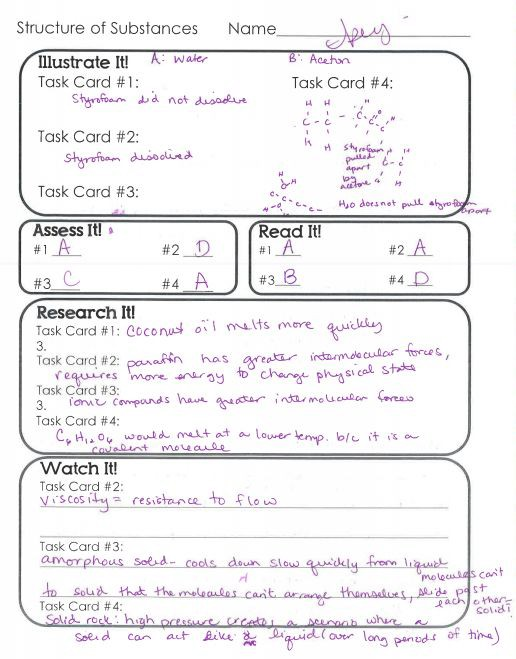 Structure of Substances Name Key
Illustrate It! A: Water B: Aceton
Task Card #1: Task Card #4:
Styrofoam did not dissolve
Task Card #2:
Styrofoam dissolved
Task Card #3:
H H
C - C - C
H H
Styrofoam
pulled
apart
by
acetone
H2O does not pull styrofoam
apart
Assess It!
#1 A #2 D
#3 C #4 A
Read It!
#1 A #2 A
#3 B #4 D
Research It!
Task Card #1: coconut oil melts more quickly
3.
Task Card #2: paraffin has greater intermolecular forces,
requires more energy to change physical state
Task Card #3:
3. ionic compands have greater intermolecular forces
Task Card #4:
C6H12O6 would melt at a lower temp. b/c it is a
covalent molecule
Watch It!
Task Card #2:
viscosity = resistance to flow
Task Card #3:
amorphous solid - cools down slow quickly from liquid
to solid that the molecules can't arrange themselves, molecules can't
slide past
each other -
solid!
Task Card #4:
Solid rock: high pressure creates a scenario where a
solid can act like a liquid (over long periods of time)